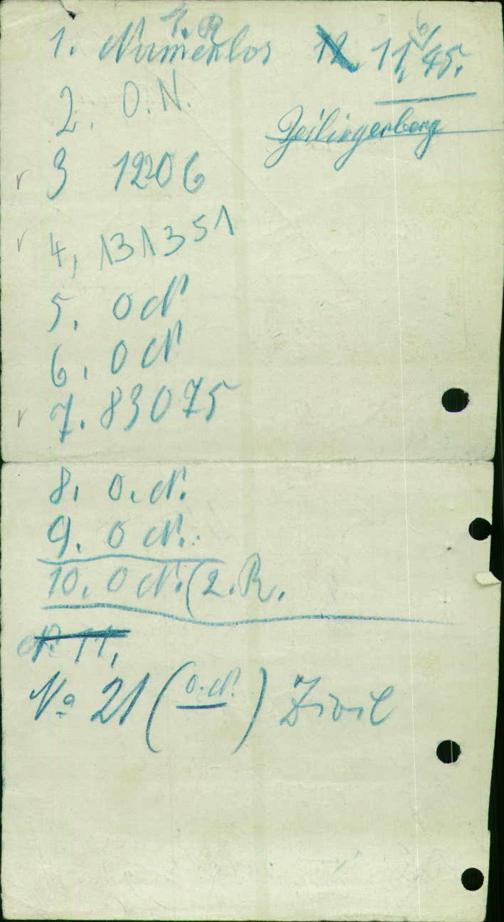 1. R
1. Numenlos 11. 6/45.
2. O.N.
Zeilingerberg
3 1206
4, 131351
5. O N
6. O N
7. 83075
8. O. N.
9. O N.
10. O N. (2. R.
N. 11,
No 21 (O. N.) Zivil